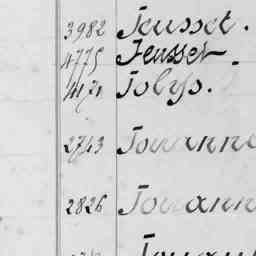 3982 Jeusset.
4775 Jeusset.
Jolys.
2713 Jouanne
2826 Jouann